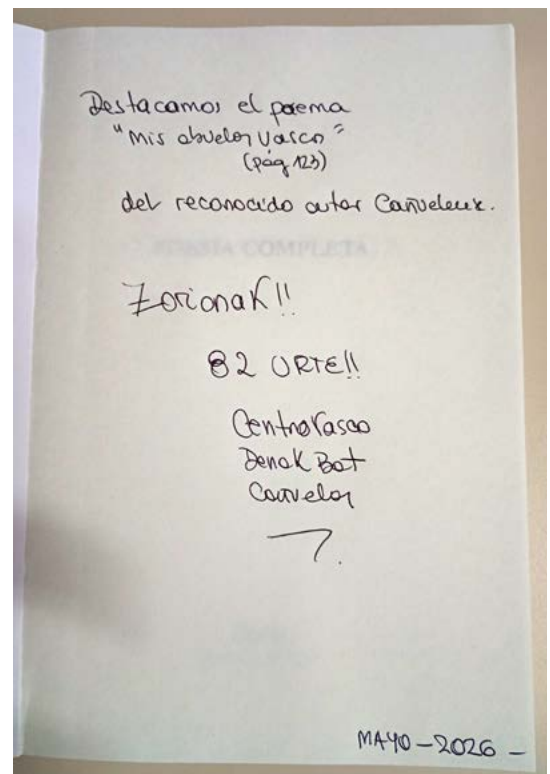 Destacamos el poema
"Mis abuelos vascos"
(pág 123)
del reconocido autor Cañuelense.
POESÍA COMPLETA
Zorionak!!
82 URTE!!
Centro Vasco
Denak Bat
Cañuelas
MAYO-2026-